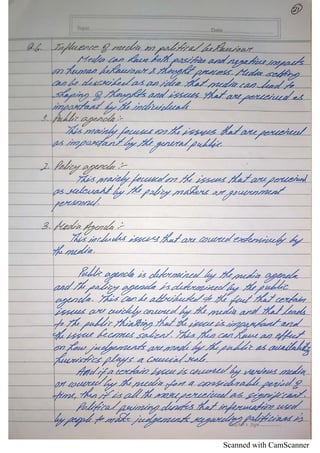 21
Topic
Date
Q.6. Influence of media on political behaviour
Media can have both positive and negative impacts
on human behaviour & thought process. Media setting
can be described as an idea that media can lead to
shaping of thoughts and issues that are perceived as
important by the individuals.
1. Public agenda :-
This mainly focuses on the issues that are perceived
as important by the general public.
2. Policy agenda :-
This mainly focused on the issues that are perceived
as relevant by the policy makers or government
personnel.
3. Media Agenda :-
This includes issues that are covered extensively by
the media.
Public agenda is determined by the media agenda
and the policy agenda is determined by the public
agenda. This can be attributed to the fact that certain
issues are quickly covered by the media and that leads
to the public thinking that the issue is important and
the issue becomes salient. This also can have an effect
on how judgements are made by the public as availability
heuristics plays a crucial role.
And if a certain issue is covered by various media
or covered by the media for a considerable period of
time, then it is all the more perceived as significant.
Political priming denotes that information used
by people to make judgements regarding politicians is
Scanned with CamScanner